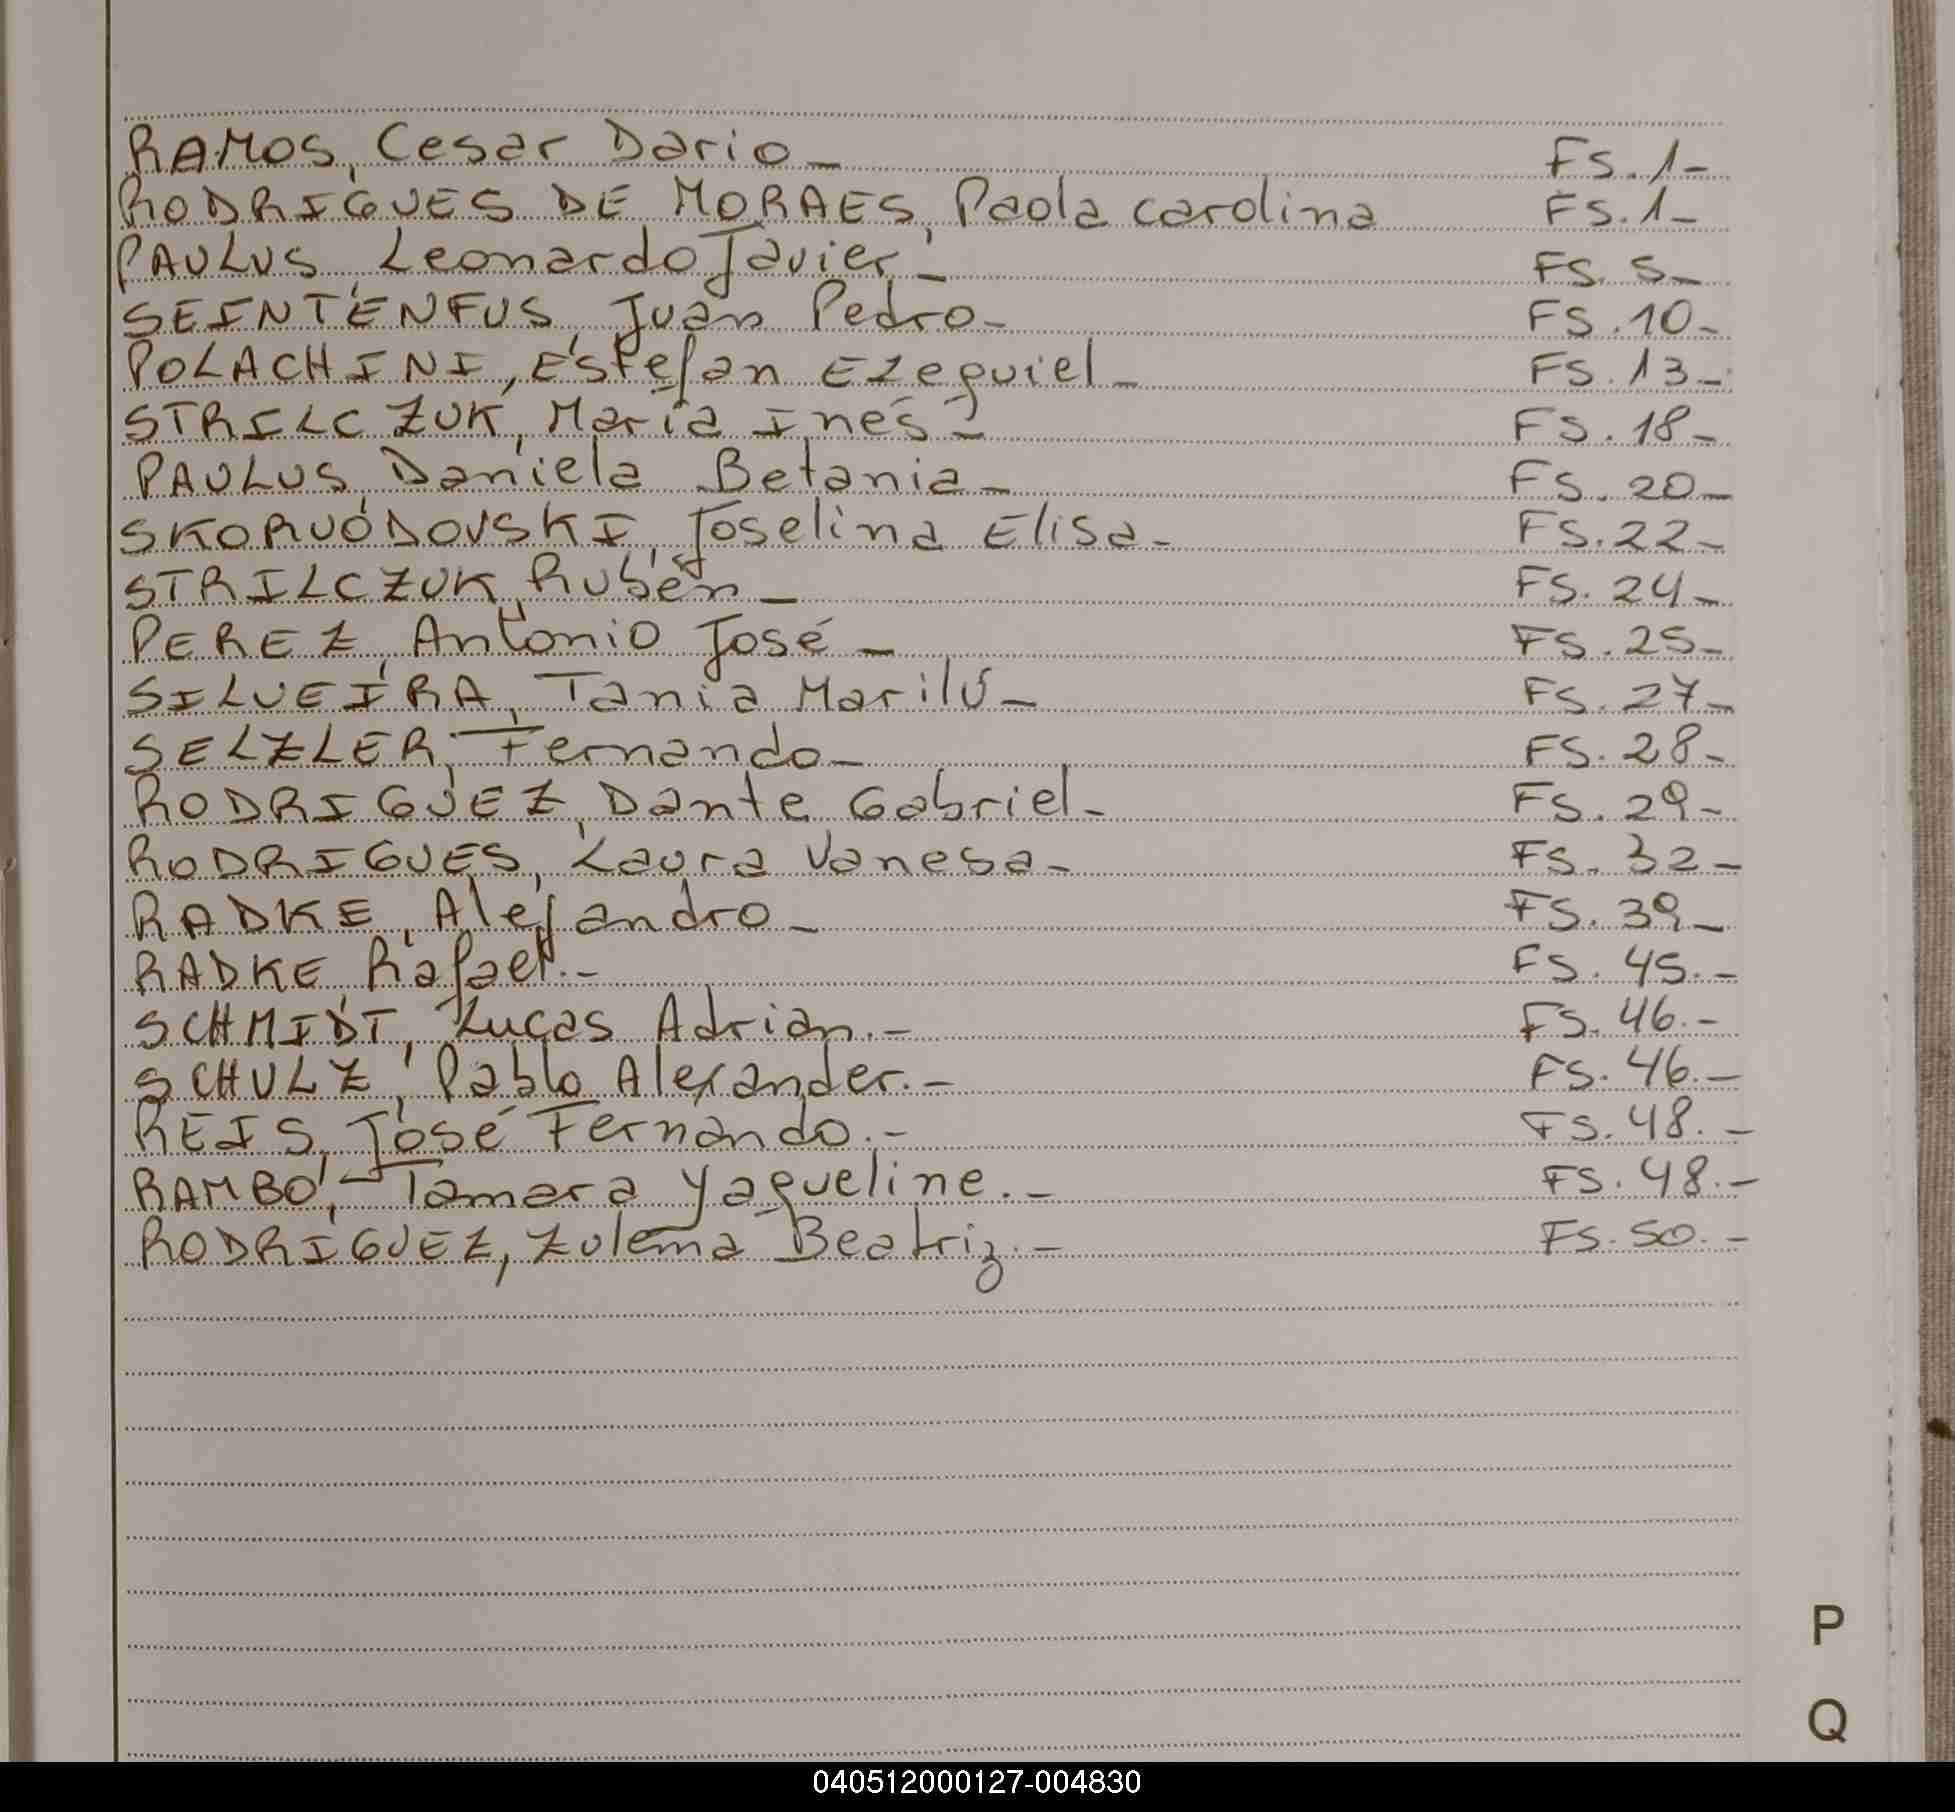 RAMOS, Cesar Dario_ FS.1_
RODRIGUES DE MORAES, Paola carolina FS.1_
PAULUS, Leonardo Javier_ FS. 5_
SEINTENFUS, Juan Pedro_ FS.10_
POLACHINI, Estefan Ezequiel_ FS.13_
STRILCZUK, María Inés_ FS.18_
PAULUS, Daniela Betania_ FS. 20_
SKORVODOVSKI, Joselina Elisa_ FS.22_
STRILCZUK, Rubén_ FS. 24_
PEREZ, Antonio José_ FS.25_
SILVEIRA, Tania Marilú_ FS. 27_
SELZLER, Fernando_ FS. 28_
RODRIGUEZ, Dante Gabriel_ FS. 29_
RODRIGUES, Laura Vanesa_ FS. 32_
RADKE, Alejandro_ FS. 39_
RADKE, Rafael.- FS. 45.-
SCHMIDT, Lucas Adrian.- FS. 46.-
SCHULZ, Pablo Alexander.- FS. 46.-
REIS, José Fernando.- FS. 48.-
RAMBO, Tamara Yaqueline.- FS. 48.-
RODRIGUEZ, Zulema Beatriz.- FS. 50.-
P
Q
040512000127-004830